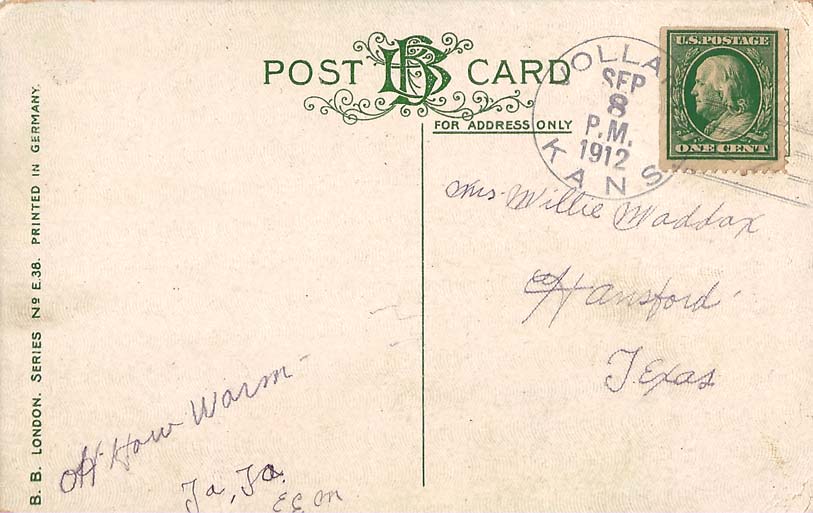 POST CARD
BB
FOR ADDRESS ONLY
U.S. POSTAGE
ONE CENT
SEP
8
P.M.
1912
KANS
B. B. LONDON. SERIES Nº E.38. PRINTED IN GERMANY.
Mrs. Willie Maddox
Hansford
Texas
Oh How Warm-
Ta, Ta.
EEM